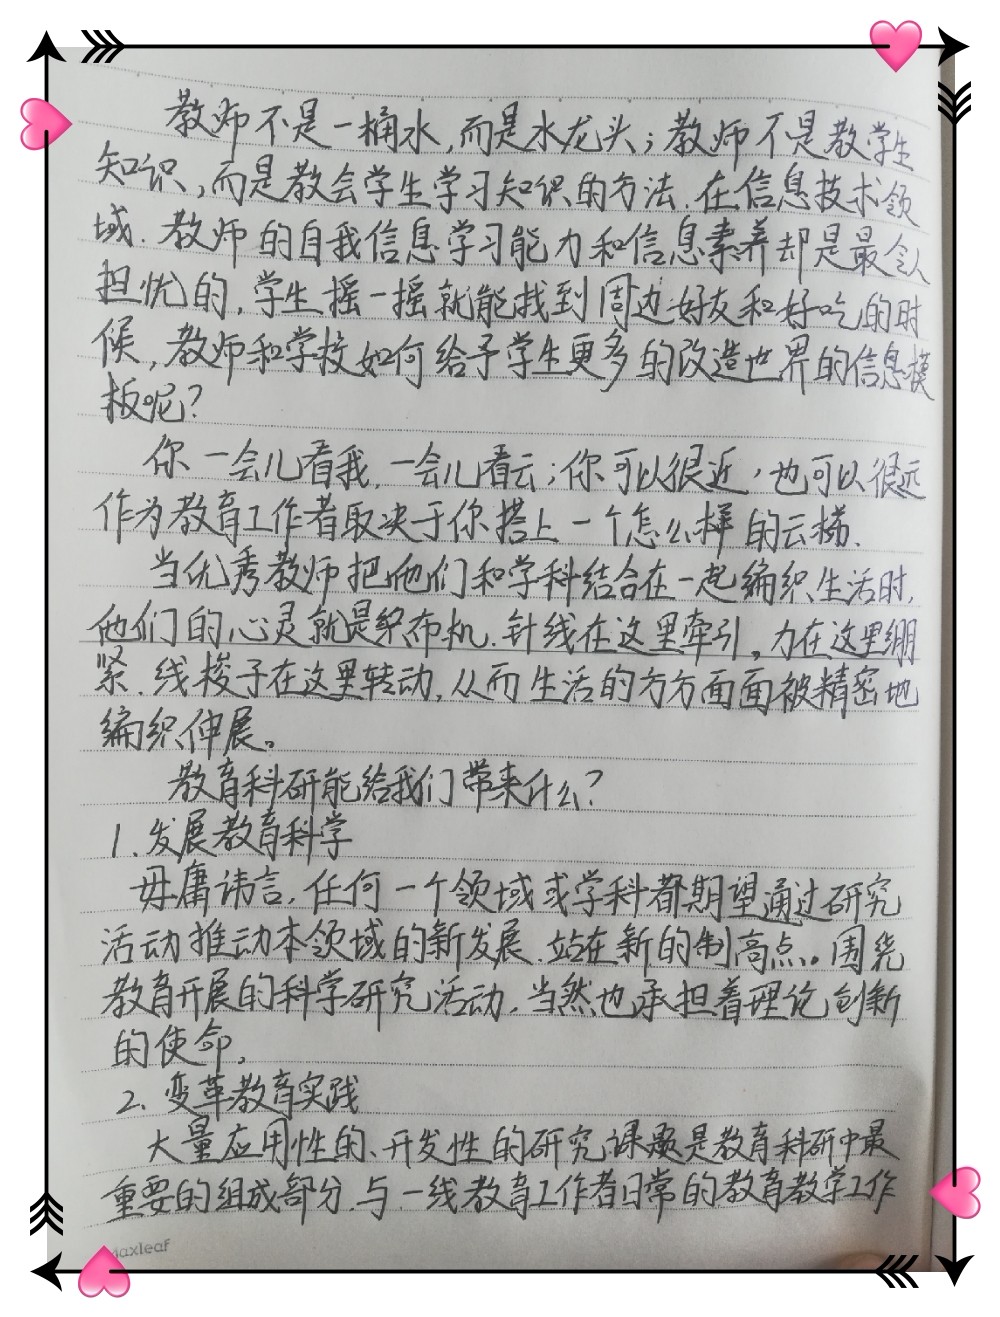 教师不是一桶水,而是水龙头;教师不是教学生
知识,而是教会学生学习知识的方法.在信息技术领
域.教师的自我信息学习能力和信息素养却是最令人
担忧的,学生摇一摇就能找到周边好友和好吃的时
候,教师和学校如何给予学生更多的改造世界的信息模
板呢?
你一会儿看我,一会儿看云;你可以很近,也可以很远
作为教育工作者取决于你搭上一个怎么样的云梯.
当优秀教师把他们和学科结合在一起编织生活时,
他们的心灵就是织布机.针线在这里牵引。力在这里绷
紧.线梭子在这里转动,从而生活的方方面面被精密地
编织伸展。
教育科研能给我们带来什么?
1.发展教育科学
毋庸讳言,任何一个领域或学科都期望通过研究
活动推动本领域的新发展.站在新的制高点。围绕
教育开展的科学研究活动.当然也承担着理论创新
的使命。
2.变革教育实践
大量应用性的、开发性的研究课题是教育科研中最
重要的组成部分.与一线教育工作者日常的教育教学工作
Maxleaf